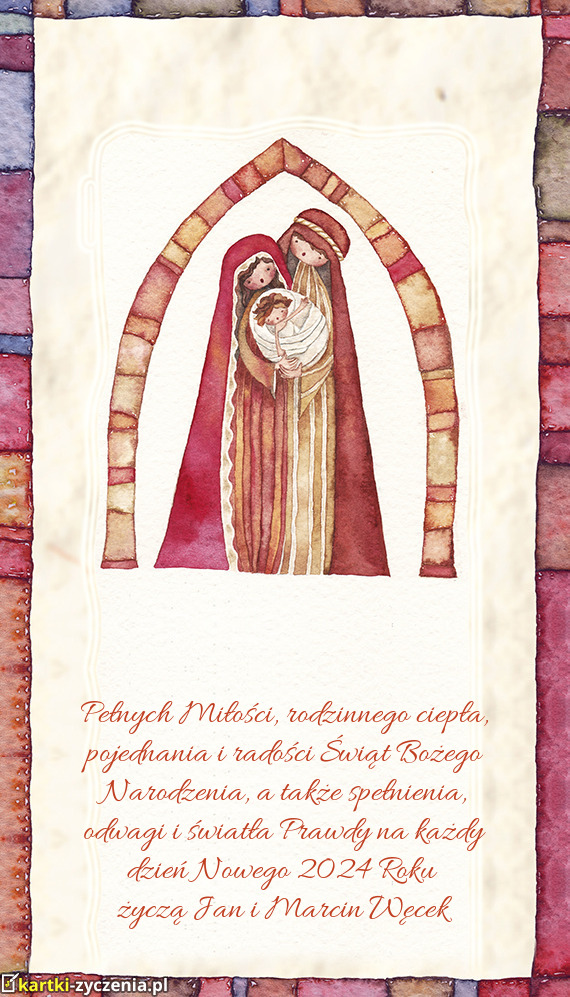 Pełnych Miłości, rodzinnego ciepła,
pojednania i radości Świąt Bożego
Narodzenia, a także spełnienia,
odwagi i światła Prawdy na każdy
dzień Nowego 2024 Roku
życzą Jan i Marcin Węcek
kartki-zyczenia.pl